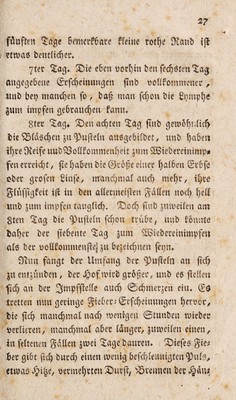 27
fünften Tage bemerkbare kleine rothe Rand ist
etwas deutlicher.
7ter Tag. Die eben vorhin den sechsten Tag
angegebene Erscheinungen sind vollkommener,
und bey manchen so, daß man schon die Lymphe
zum impfen gebrauchen kann.
8ter Tag. Den achten Tag sind gewöhnlich
die Bläschen zu Pusteln ausgebildet, und haben
ihre Reife und Vollkommenheit zum Wiedereinimp-
fen erreicht, sie haben die Größe einer halben Erbse
oder grosen Linse, manchmal auch mehr, ihre
Flüssigkeit ist in den allermeisten Fällen noch hell
und zum impfen tauglich. Doch sind zuweilen am
8ten Tag die Pusteln schon trübe, und könnte
daher der siebente Tag zum Wiedereinimpfen
als der vollkommenste zu bezeichnen seyn.
Nun fangt der Umfang der Pusteln an sich
zu entzünden, der Hof wird größer, und es stellen
sich an der Impfstelle auch Schmerzen ein. Es
tretten nun geringe Fieber-Erscheinungen hervor,
die sich manchmal nach wenigen Stunden wieder
verlieren, manchmal aber länger, zuweilen einen,
in seltenen Fällen zwei Tage dauren. Dieses Fie-
ber gibt sich durch einen wenig beschleunigten Puls,
etwas Hitze, vermehrten Durst, Brennen der Hän-